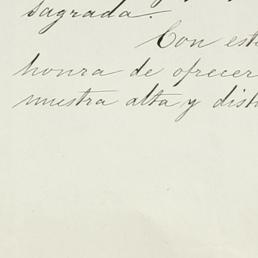 sagrada.
Con est
honra de ofrecer
nuestra alta y dist